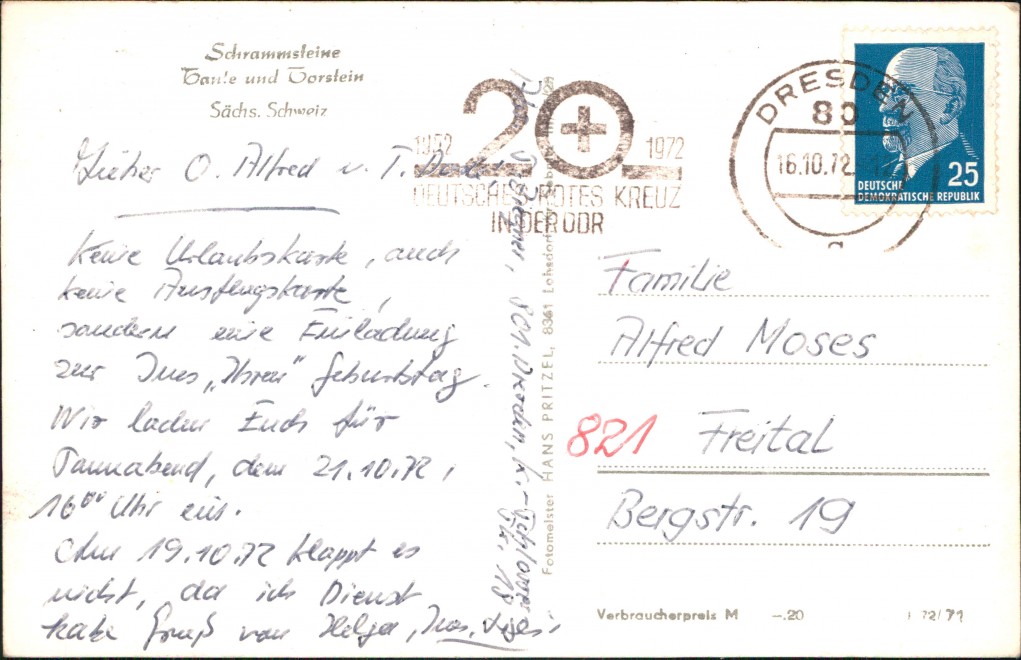 Schrammsteine
Tante und Torstein
Sächs. Schweiz
Lieber O. Alfred u. T.
Keine Urlaubskarte, auch
keine Ausflugskarte,
sondern eine Einladung
zur Ines „Ihren" Geburtstag.
Wir laden Euch für
Sonnabend, dem 21.10.72,
16⁰⁰ Uhr ein.
Am 19.10.72 klappt es
nicht, da ich Dienst
habe Gruß von Helga, Ines,
801 Dresden,
18
Fotomeister HANS PRITZEL, 8361 Lohsdorf
1952 20 1972
DEUTSCHES ROTES KREUZ
IN DER DDR
DRESDEN
80
16.10.72
a
25
DEUTSCHE
DEMOKRATISCHE REPUBLIK
Familie
Alfred Moses
821 Freital
Bergstr. 19
Verbraucherpreis M –.20
72/71